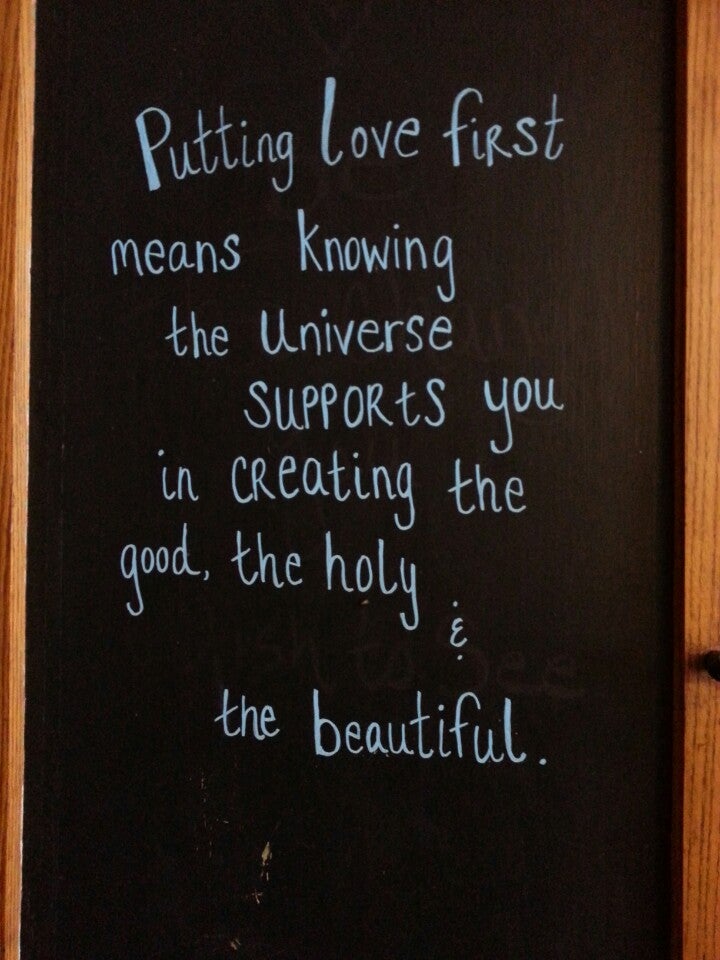 Putting Love first
means knowing
the Universe
SUPPORtS you
in CReating the
good, the holy
&
the beautiful.